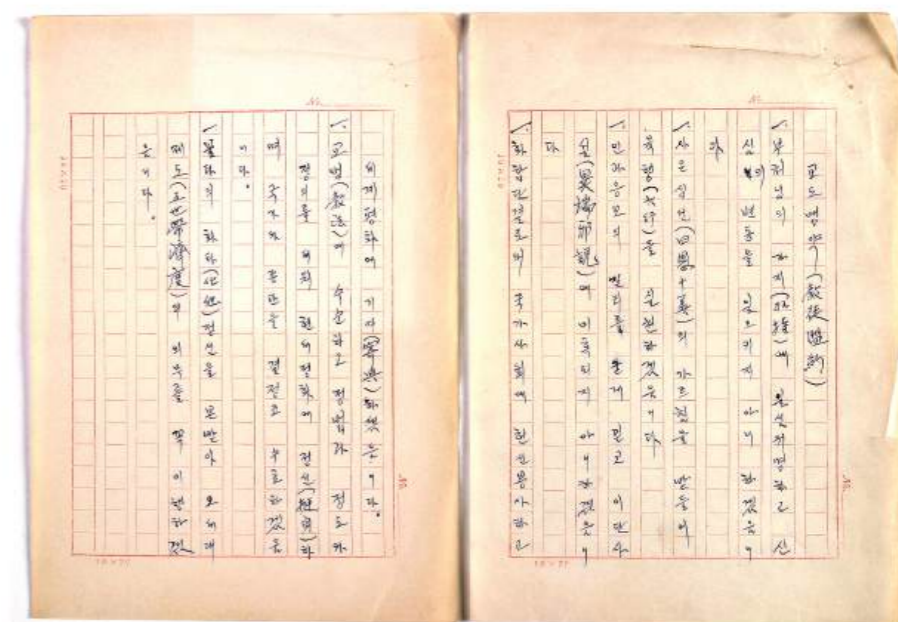 교도맹약(敎徒盟約)
1. 부처님의 가지(加持)에 귀명하고 신
심의 변동을 일으키지 아니 하겠읍니
다
1. 사은십선(四恩十善)의 가르침을 받들어
육행(六行)을 실천하겠읍니다
1. 인과응보의 굳게 믿고 이단사
설(異端邪說)에 미혹되지 아니하겠읍니
다
1. 화합단결로써 국가사회에 헌신봉사하고
세계평화에 기여(寄與)하겠읍니다.
1. 교법(敎法)에 수순하고 정법과 정도와
정의를 위해 현세정화에 정신(挺身)하
며 국가와 종단을 결정코 수호하겠읍
니다.
1. 불타의 화타(化他)정신을 본받아 오세대
제도(五世帶濟度)의 의무를 꼭 이행하겠
읍니다.